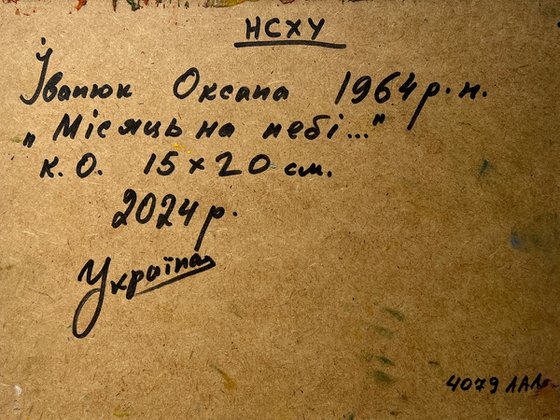 НСХУ
Іванюк Оксана 1964 р.н.
„Місяць на небі..."
к.о. 15 x 20 см.
2024 р.
Україна
4079